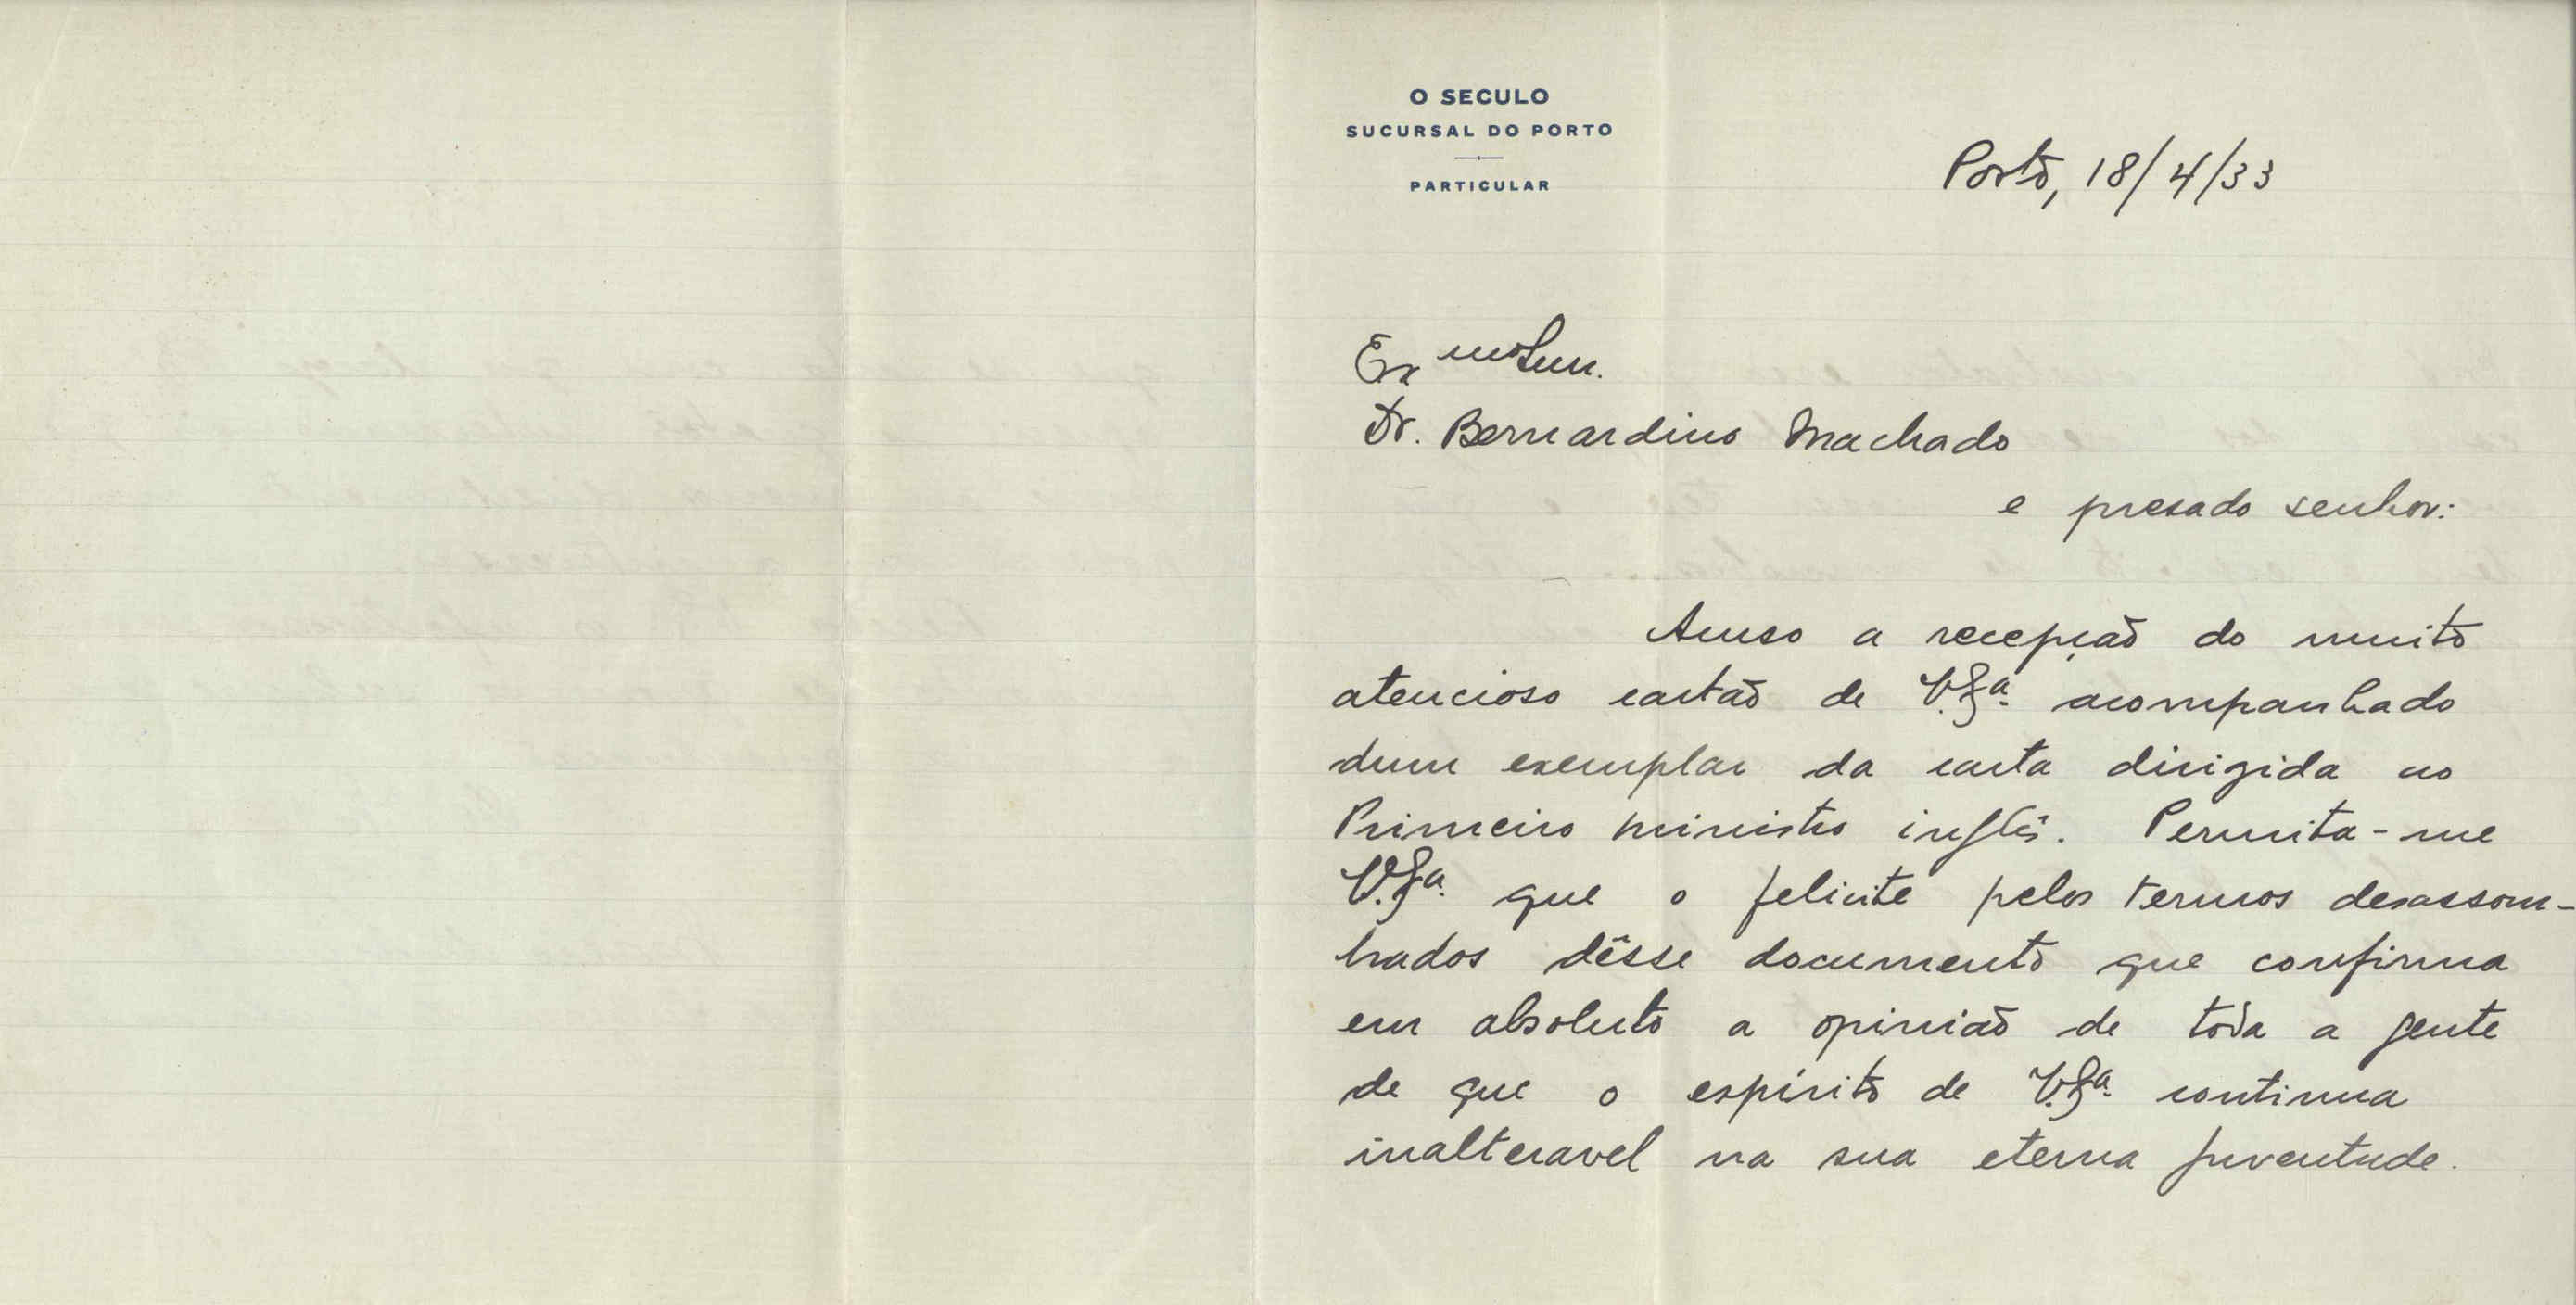 O SECULO
SUCURSAL DO PORTO
PARTICULAR
Porto, 18/4/33
Exmo Snr.
Dr. Bernardino Machado
e presado senhor:
Acuso a recepção do muito
atencioso cartão de V. Exa. acompanhado
dum exemplar da carta dirigida ao
Primeiro ministro inglês. Permita-me
V. Exa. que o felicite pelos termos desassom-
brados dêsse documento que confirma
em absoluto a opinião de toda a gente
de que o espírito de V. Exa. continua
inalteravel na sua eterna juventude.